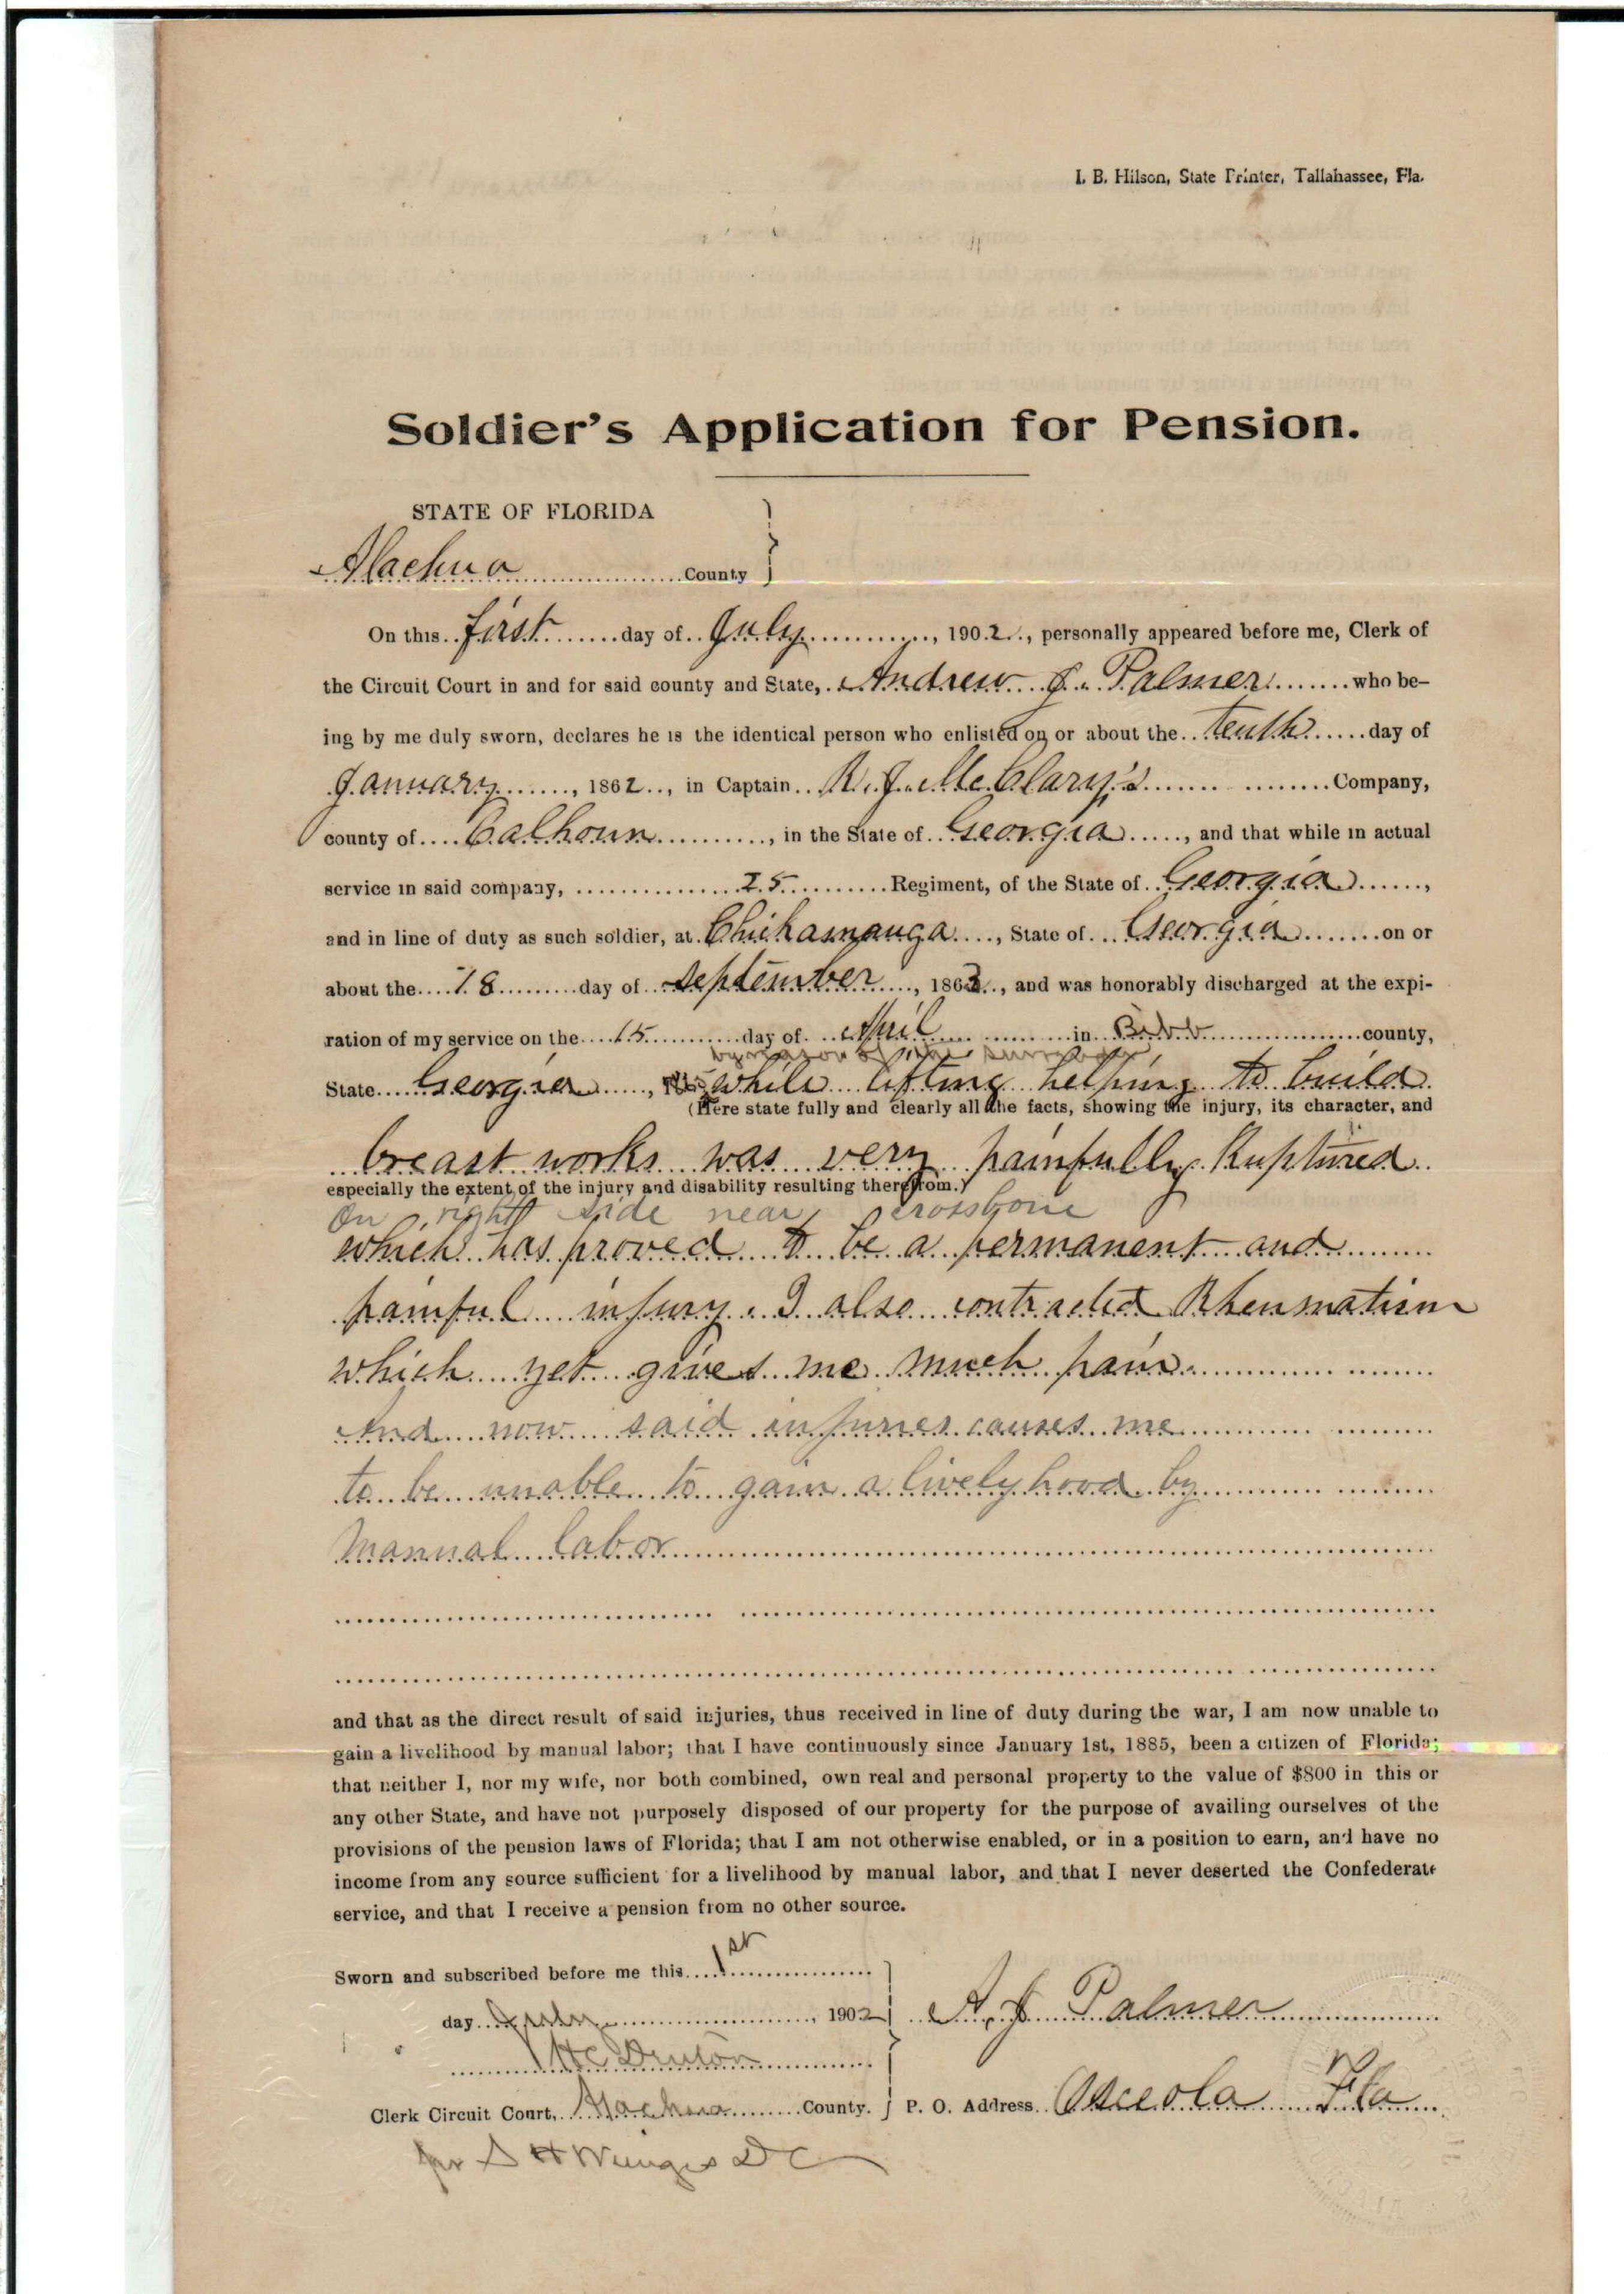 I. B. Hilson, State Printer, Tallahassee, Fla.
Soldier's Application for Pension.
STATE OF FLORIDA
Alachua County
On this first day of July, 1902, personally appeared before me, Clerk of
the Circuit Court in and for said county and State, Andrew J. Palmer who be-
ing by me duly sworn, declares he is the identical person who enlisted on or about the tenth day of
January, 1862, in Captain R. J. McClary's Company,
county of Calhoun, in the State of Georgia, and that while in actual
service in said company, 25 Regiment, of the State of Georgia,
and in line of duty as such soldier, at Chickamauga, State of Georgia on or
about the 18 day of September, 1863, and was honorably discharged at the expi-
ration of my service on the 15 day of April in Bibb county,
by reason of the surrender
State Georgia, while lifting helping to build
(Here state fully and clearly all the facts, showing the injury, its character, and
breast works was very painfully Ruptured
especially the extent of the injury and disability resulting therefrom.)
On right side near crossbone
which has proved to be a permanent and
painful injury. I also contracted Rheumatism
which yet gives me much pain.
And now said injuries causes me
to be unable to gain a livelyhood by
manual labor
and that as the direct result of said injuries, thus received in line of duty during the war, I am now unable to
gain a livelihood by manual labor; that I have continuously since January 1st, 1885, been a citizen of Florida;
that neither I, nor my wife, nor both combined, own real and personal property to the value of $800 in this or
any other State, and have not purposely disposed of our property for the purpose of availing ourselves of the
provisions of the pension laws of Florida; that I am not otherwise enabled, or in a position to earn, and have no
income from any source sufficient for a livelihood by manual labor, and that I never deserted the Confederate
service, and that I receive a pension from no other source.
Sworn and subscribed before me this 1st
day July, 1902 A. J. Palmer
H C Denton
Clerk Circuit Court, Alachua County. P. O. Address Osceola Fla
per S H Wienges D C